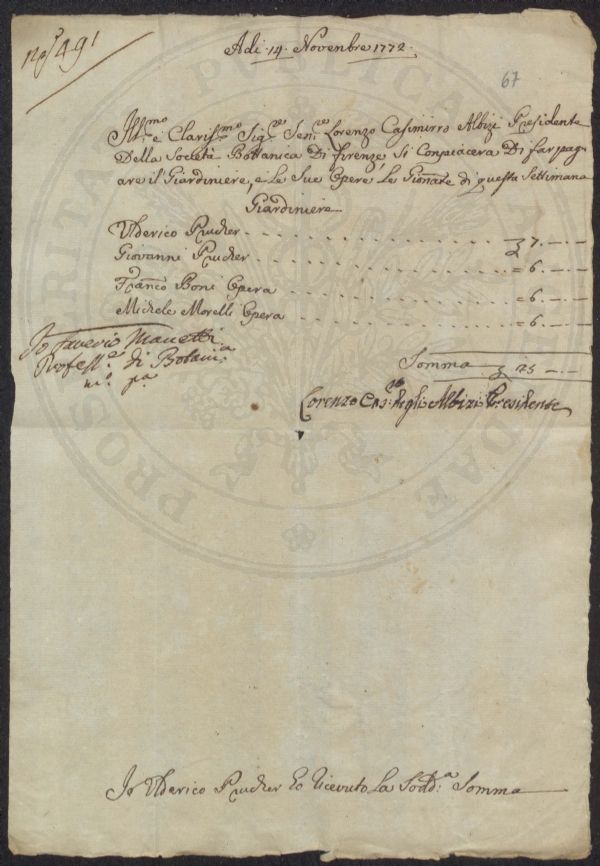 N.º 491
Adi 14 Novenbre 1772
67
Ill.mo e Clariss.mo Sig.re Sen.re Lorenzo Casimirro Albizi Presidente
Della Società Bottanica Di firenze Si Conpiacera Di far pag-
are il Giardiniere, e Le Sue Opere Le Giornate di questa Settimana
Giardiniere
Ulderico Prucher 7.—.—
Giovanni Prucher =6.—.—
Franco Boni Opera =6.—.—
Michele Morelli Opera =6.—.—
Io Saverio Manetti
Profess.e di Botani.a
m.o p.a
Somma 25—.—
Lorenzo Cas.ro degli Albizi Presidente
Io Ulderico Prucher Eo Ricevuto La Sodd.a Somma